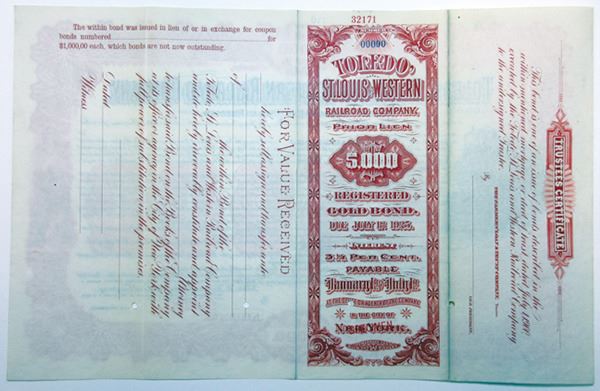 The within bond was issued in lieu of or in exchange for coupon
bonds numbered for
$1,000,00 each, which bonds are not now outstanding.
For Value Received
hereby sell assign and transfer unto
of
the within Bond of the
Toledo, St. Louis and Western Railroad Company,
and do hereby irrevocably constitute and appoint
Attorney
to transfer said Bond on the Books of the Company,
at its office or agency in the City of New York with
full power of substitution in the premises.
Dated
Witness:
32171
00000
TOLEDO,
ST. LOUIS AND WESTERN
RAILROAD COMPANY,
PRIOR LIEN
$5,000
REGISTERED
GOLD BOND,
DUE JULY 1st, 1925.
INTEREST
3½ PER CENT.
PAYABLE
January 1st & July 1st
AT THE OFFICE OR AGENCY OF THE COMPANY
IN THE CITY OF
NEW YORK.
TRUSTEES CERTIFICATE.
This bond is one of an issue of bonds described in the
within mentioned mortgage or deed of trust dated July 1, 1900
executed by the Toledo, St. Louis and Western Railroad Company
to the undersigned Trustee.
THE FARMERS' LOAN & TRUST COMPANY,
By
VICE PRESIDENT.